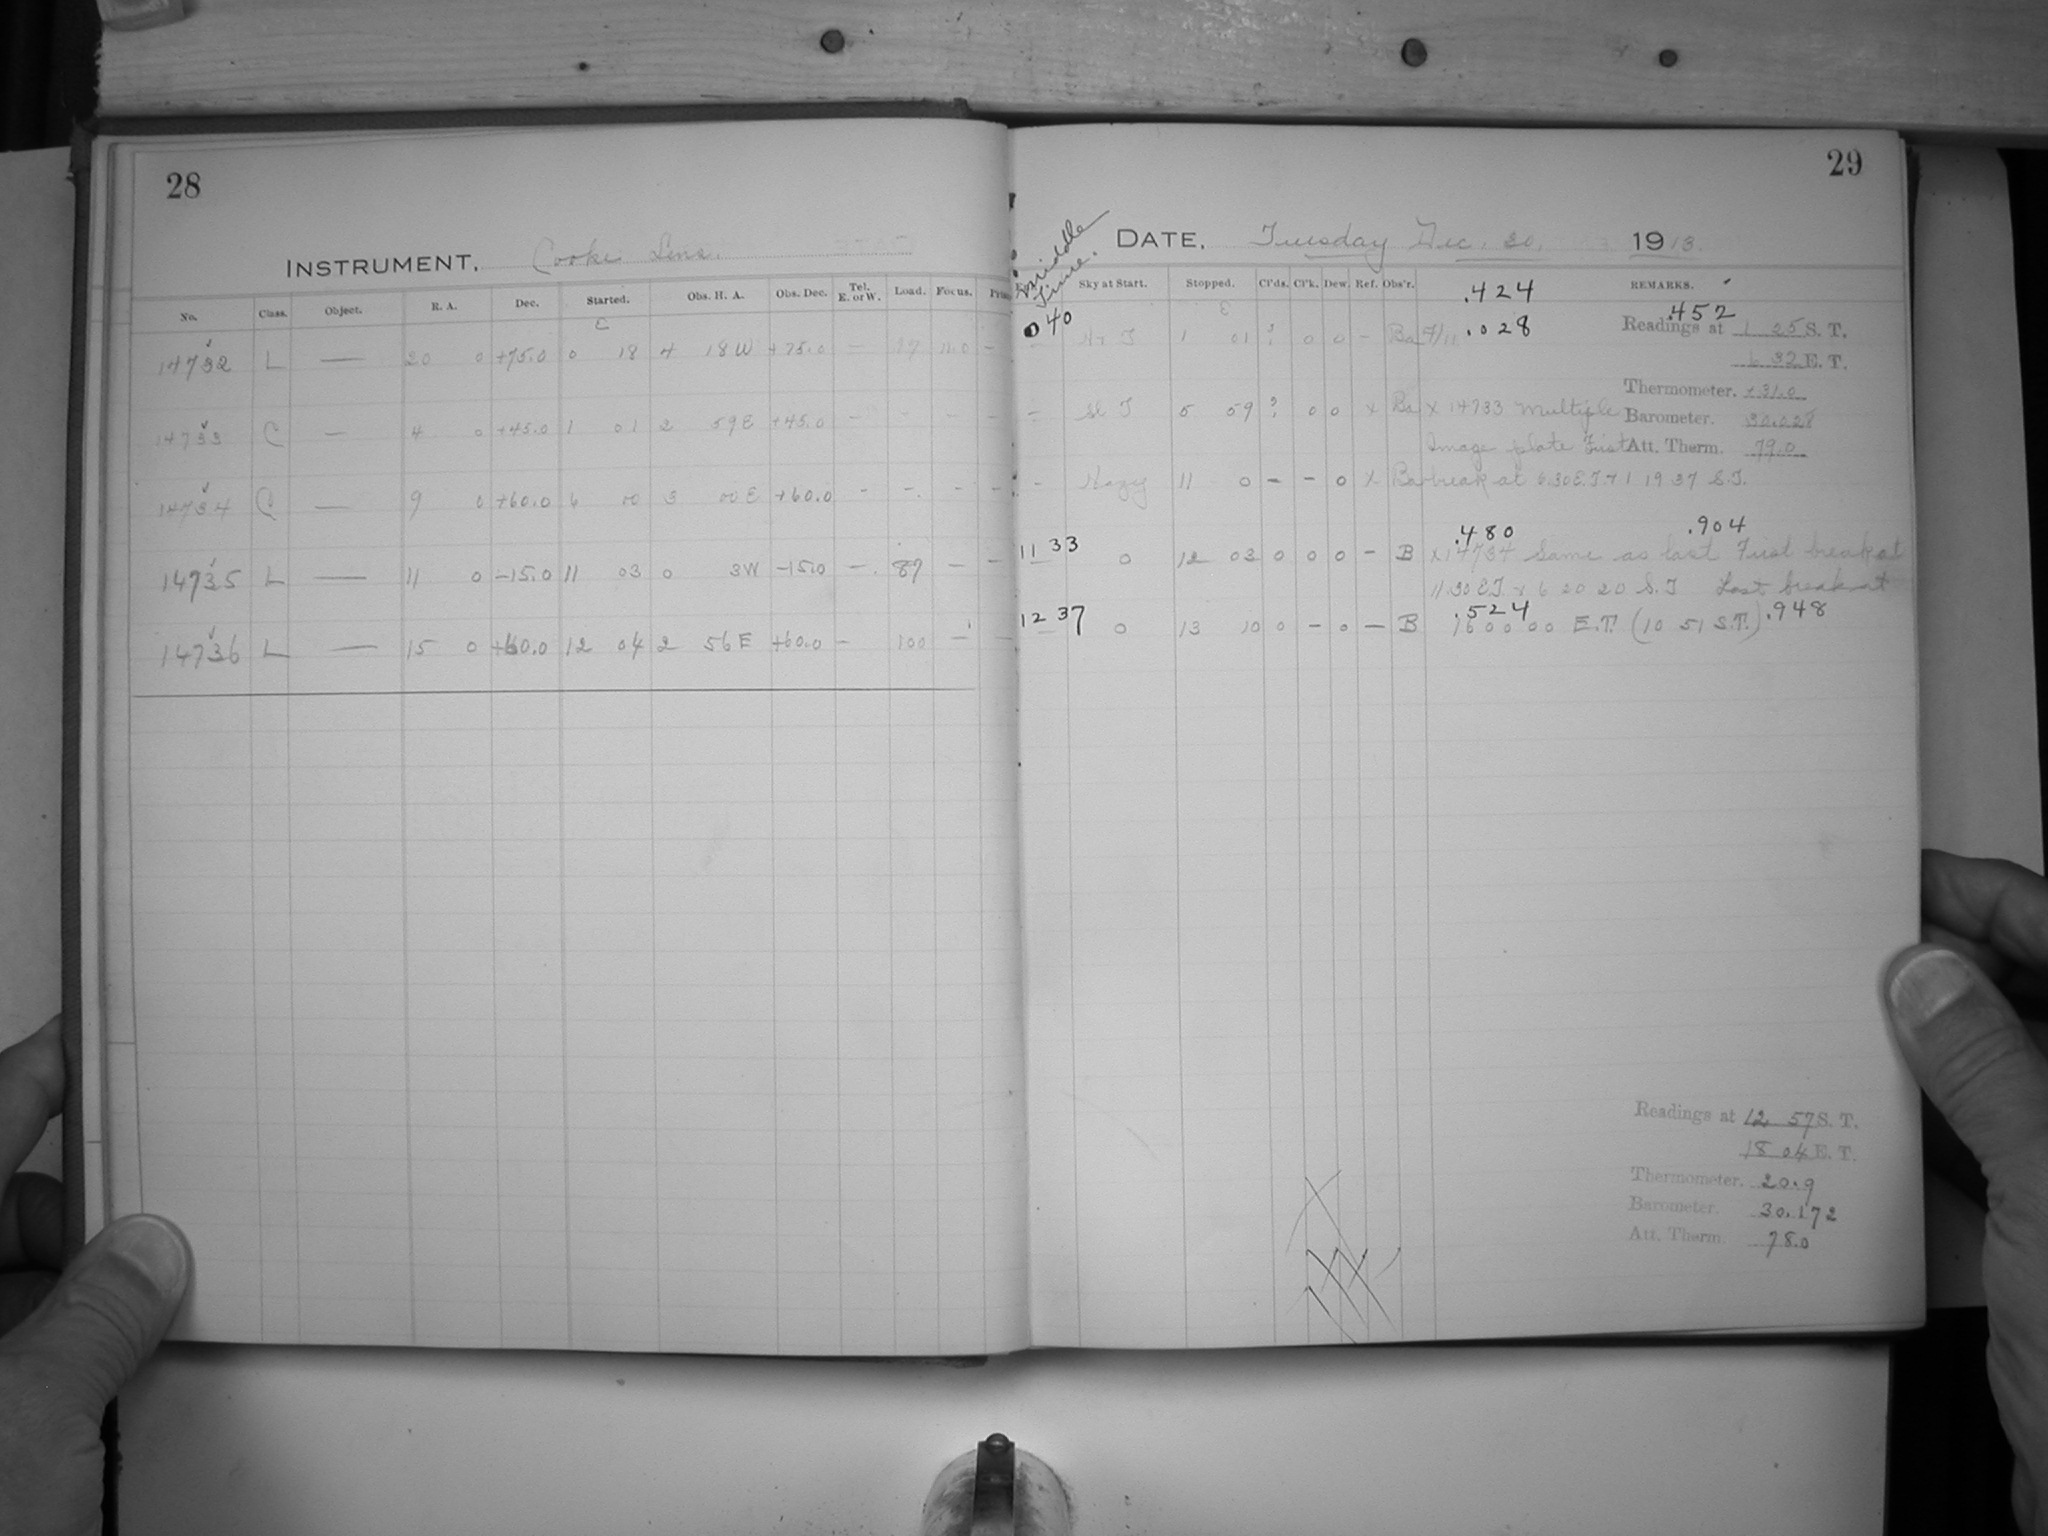 28
INSTRUMENT. Cooke Lens.
No. Class. Object. R. A. Dec. Started. Obs. H. A. Obs. Dec. Tel. E. or W. Load. Focus.
14732 L — 20 0 +75.0 0 18 4 18W +75.0 —
14733 C — 4 0 +45.0 1 01 2 59E +45.0 — — — —
14734 C — 9 0 +60.0 6 00 3 00E +60.0 — — — —
14735 L — 11 0 -15.0 11 03 0 3W -15.0 — 87 — —
14736 L — 15 0 +60.0 12 04 2 56E +60.0 — 100 — —
29
DATE, Tuesday Dec. 1913.
Middle Time.
Sky at Start. Stopped. Cl'ds. Cl'k. Dew. Ref. Obs'r. REMARKS.
.424
.452
0 40 1 01 ? 0 0 — Ba .028
Readings at 1 25 S. T.
6 32 E. T.
Thermometer. +31.0
— 5 59 ? 0 0 x Ba x 14733 Multiple
Barometer. 30.028
Image plate First
Att. Therm. 79.0
— Hazy 11 0 — — 0 x Ba break at 6.30 E.T + 1 19 37 S.T.
.480 .904
11 33 0 12 03 0 0 0 — B x 14734 Same as last First break at
11.30 E.T. x 6 20 20 S.T Last break at
.524 .948
12 37 0 13 10 0 — 0 — B 16 00 00 E.T. (10 51 S.T.)
Readings at 12 57 S. T.
18 04 E. T.
Thermometer. 20.9
Barometer. 30.172
Att. Therm. 78.0